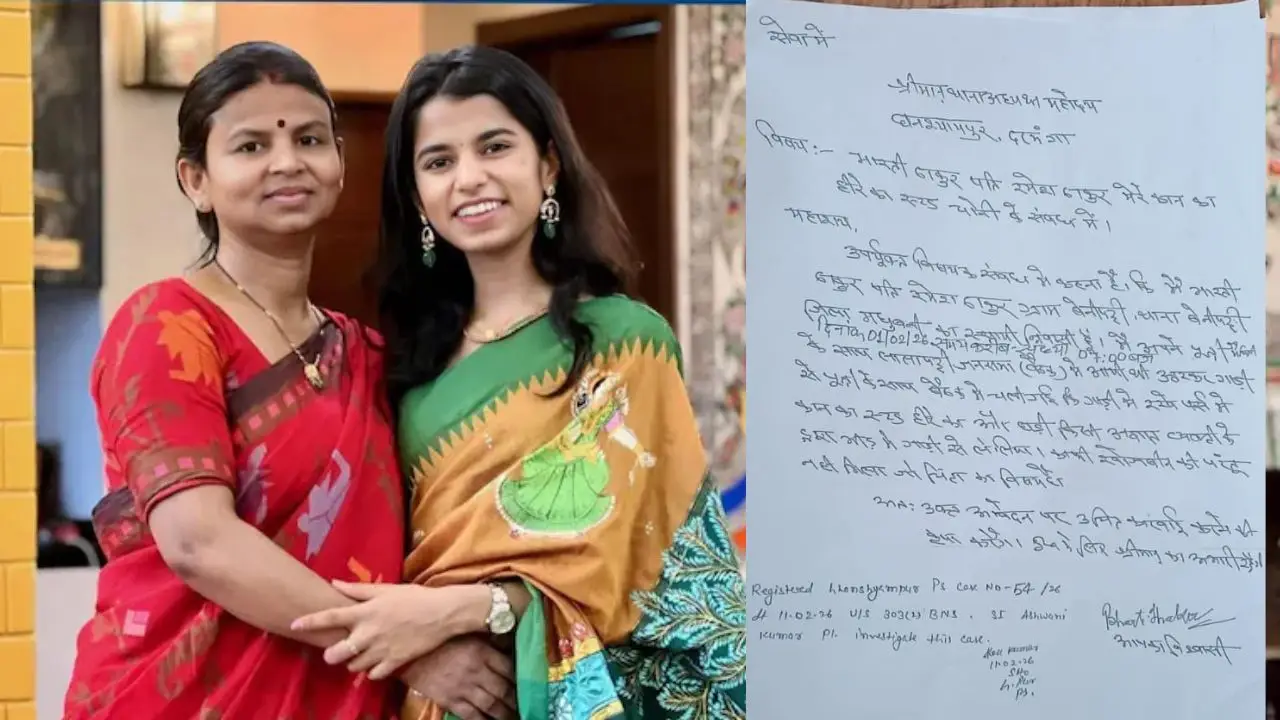 सेवा में
श्रीमान् थानाध्यक्ष महोदय
घनश्यामपुर, दरभंगा
विषय :- भारती ठाकुर पति रमेश ठाकुर मेरे कान का
हीरे का स्टड चोरी के संबंध में।
महाशय,
उपर्युक्त विषयक संबंध में कहना है, कि मैं भारती
ठाकुर पति रमेश ठाकुर ग्राम बेनीपट्टी थाना बेनीपट्टी
जिला मधुबनी का स्थायी निवासी हूँ। मैं अपने पुत्री
दिनांक 01/02/26 समय करीब 07:00 बजे
के साथ
से पुत्री के साथ बैठक में चली गई कि गाड़ी में रखे पर्स में
कान का स्टड हीरे का और घड़ी किसी अज्ञात व्यक्ति के
द्वारा गाड़ी से ले लिया। काफी खोजबीन की परंतु
नहीं मिला जो चिंता का विषय है।
अतः उक्त आवेदन पर उचित कार्रवाई करने की
कृपा करेंगे। इसके लिए श्रीमान् का आभारी रहूँगी
Registered Ghanshyampur PS Case No-54/26
dt 11-02-26 U/S 303(2) BNS. SI Ashwani
Kumar Pl. investigate this case.
11-02-26
SHO
PS.
आपका विश्वासी